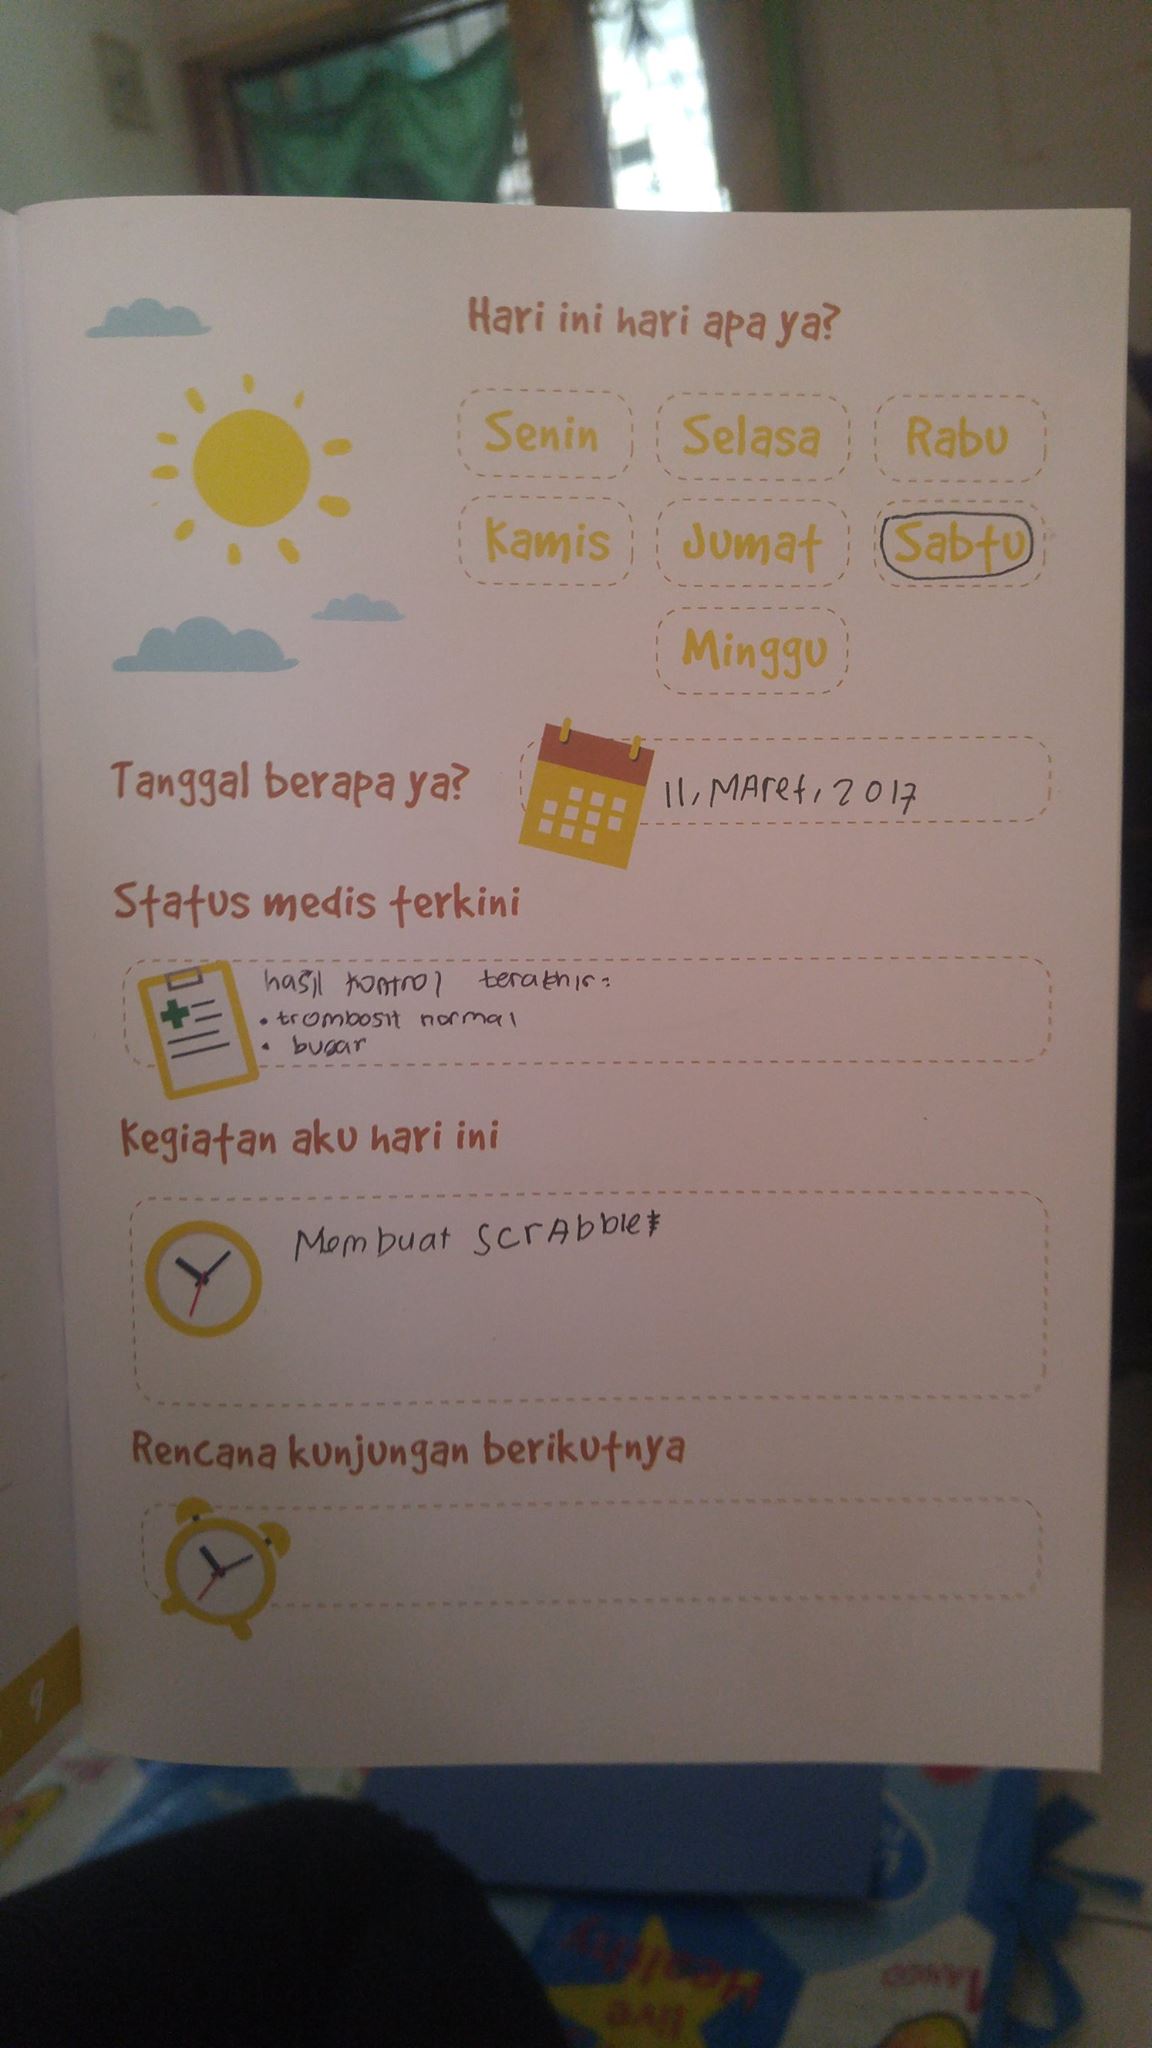 Hari ini hari apa ya?
Senin Selasa Rabu
Kamis Jumat Sabtu
Minggu
Tanggal berapa ya?
11, MAret, 2017
Status medis terkini
hasil kontrol terakhir:
• trombosit normal
• bugar
Kegiatan aku hari ini
Membuat scrAbble
Rencana kunjungan berikutnya
9
Healthy
live